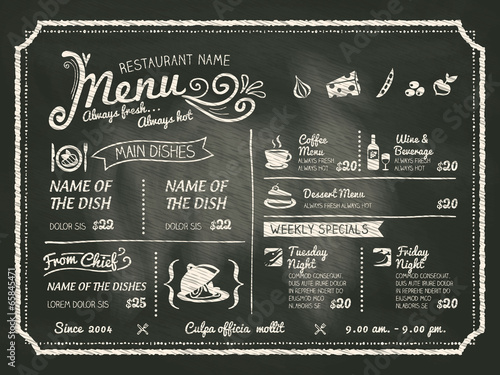 RESTAURANT NAME
Menu
Always fresh...
Always hot
MAIN DISHES
NAME OF
THE DISH
DOLOR SIS $22
NAME OF
THE DISH
DOLOR SIS $22
From Chief
NAME OF THE DISHES
LOREM DOLOR SIS $25
Coffee
Menu
ALWAYS FRESH
ALWAYS HOT $20
Wine &
Beverage
ALWAYS FRESH
ALWAYS HOT $20
Dessert Menu
ALWAYS FRESH ALWAYS HOT $20
WEEKLY SPECIALS
Tuesday
Night
COMMOD CONSEQUAT.
DUIS AUTE IRURE
DOLOR IN
REPREHENDERIT
EIUSMOD
NCO
NLAMCO
ISI UT AB $20
Friday
Night
COMMOD CONSEQUAT.
DUIS AUTE IRURE
DOLOR IN
REPREHENDERIT
EIUSMOD
NCO
NLAMCO
ISI UT AB $20
Since 2004
Culpa officia mollit
9.00 am. - 9.00 pm.
© 65845471